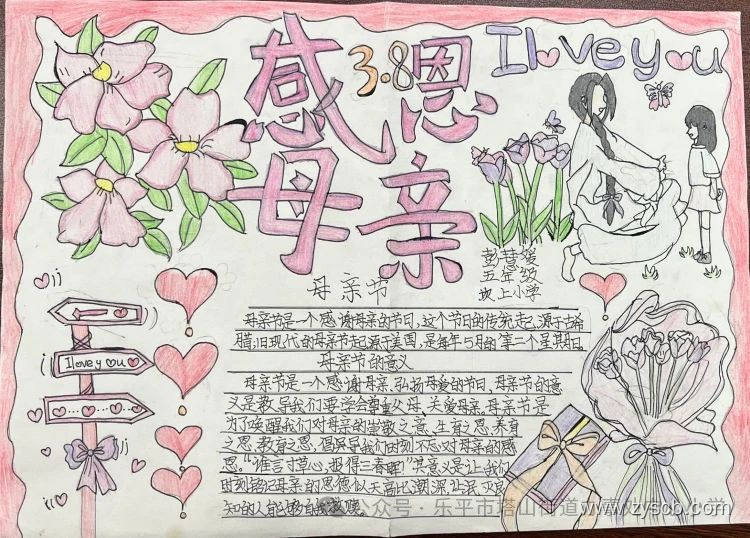 感 3.8 恩
I love you
母亲
彭慧
五年级
坎上小学
母亲节
母亲节是一个感谢母亲的节日,这个节日的传统起源于古希
腊;旧现代的母亲节起源于美国,是每年5月的第二个星期日
母亲节的意义
母亲节是一个感谢母亲,弘扬母爱的节日,母亲节的意
义是教导我们要学会尊重父母、关爱母亲。母亲节是
为了唤醒我们对母亲的崇敬之意、生育之恩、养育
之恩、教育之恩,倡导我们时刻不忘对母亲的感
恩。“谁言寸草心,报得三春晖!”其意义是让我们
时刻铭记母亲的恩德似天高比潮深,让泯灭良
知的人能够自我救赎。
I love you
公众号·乐平市塔山街道
www.zyscb.com